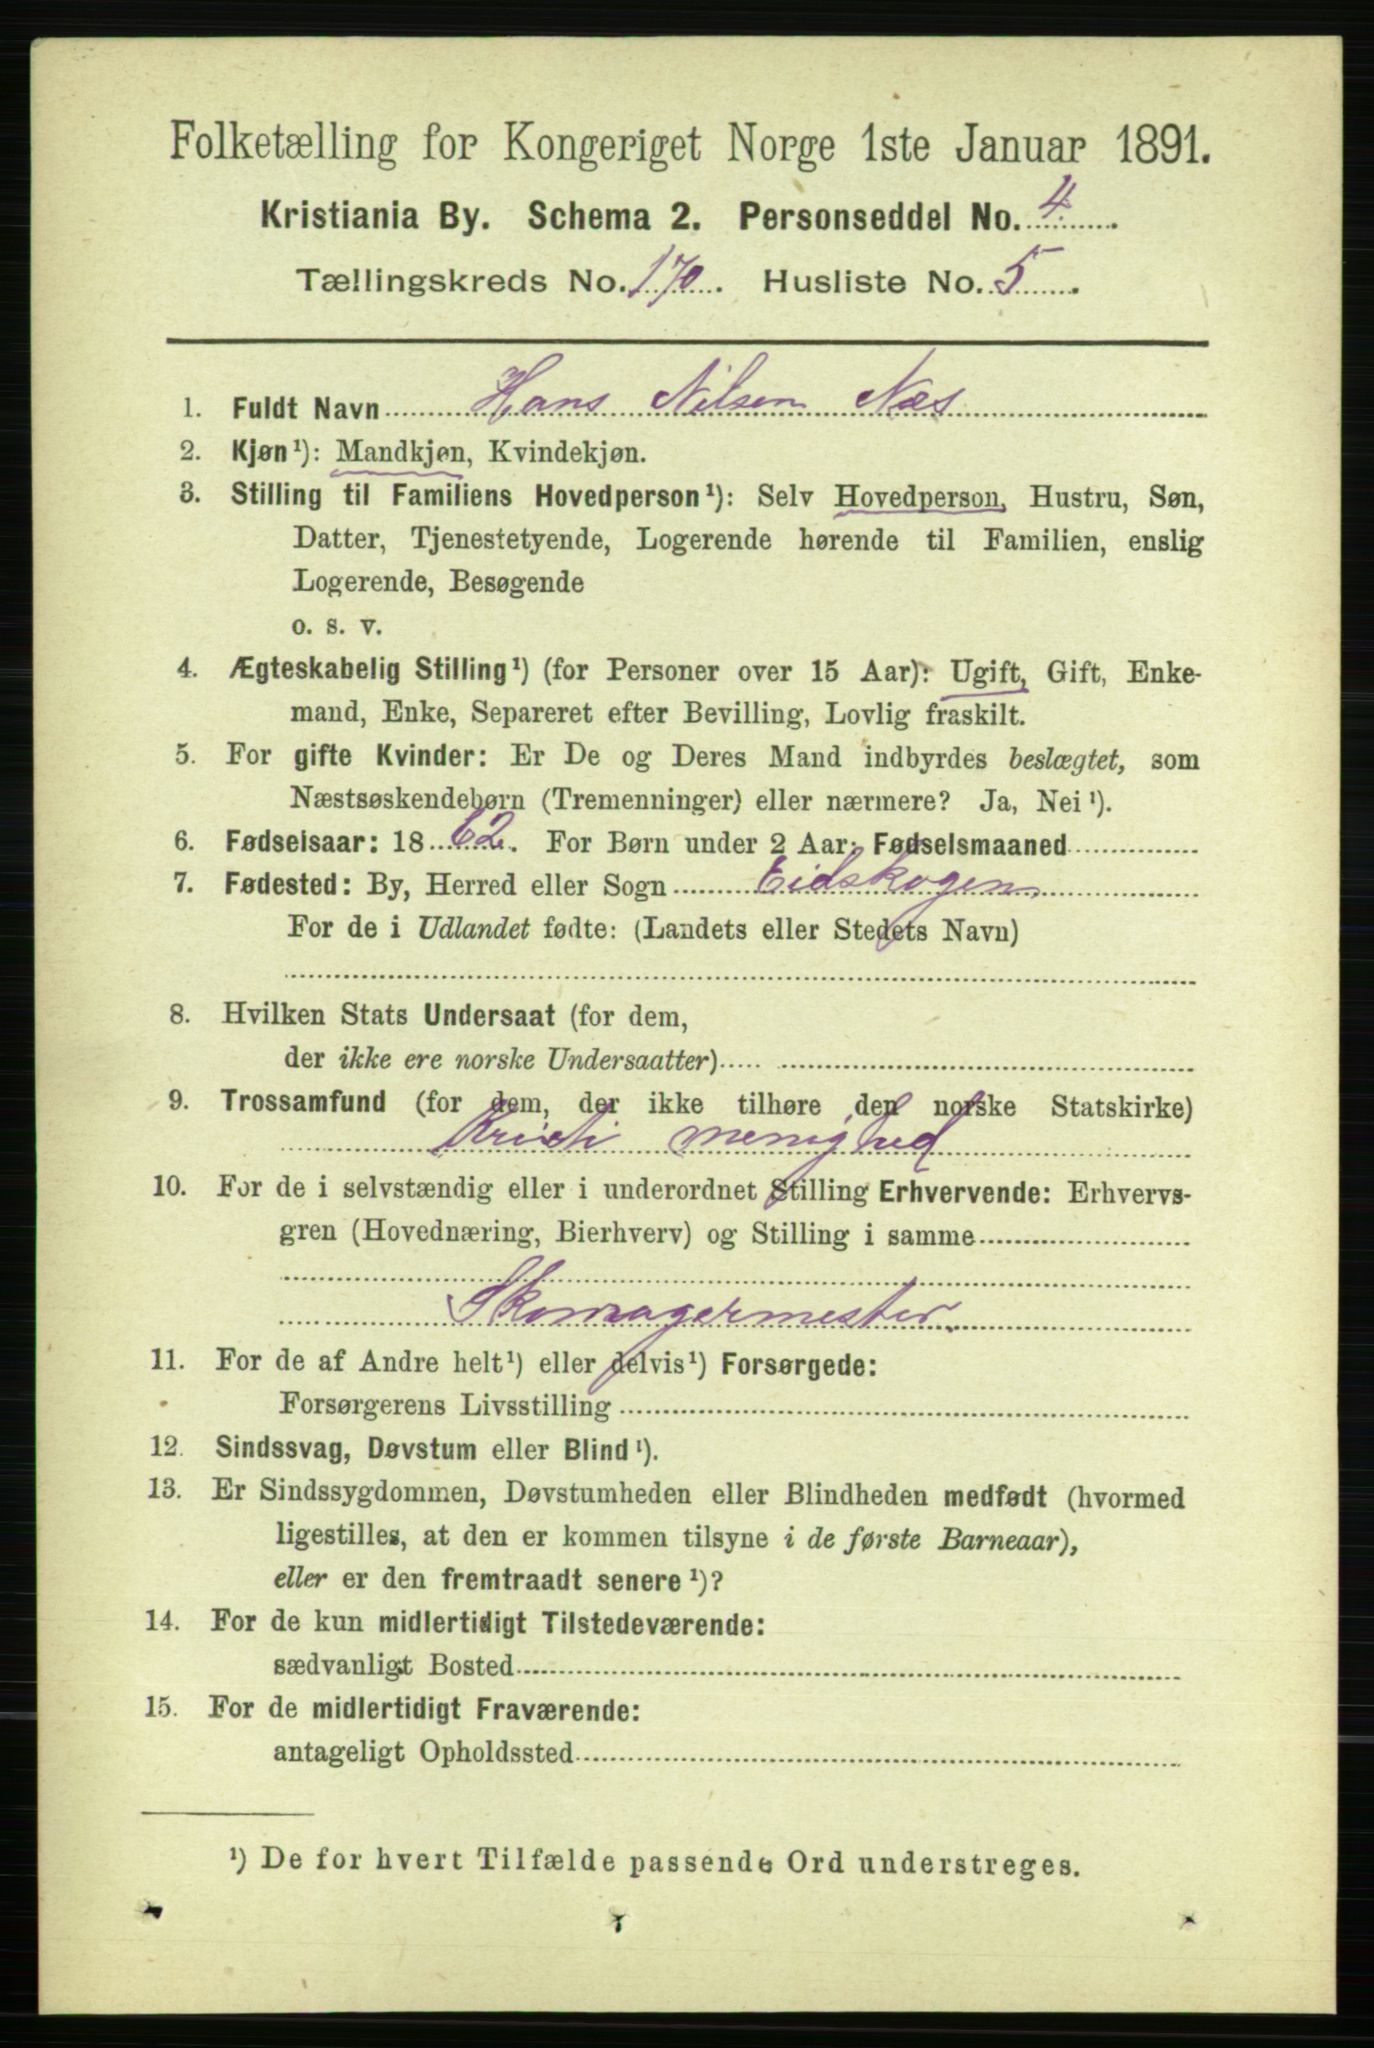 Folketælling for Kongeriget Norge 1ste Januar 1891.
Kristiania By. Schema 2. Personseddel No. 4
Tællingskreds No. 170. Husliste No. 5.
1. Fuldt Navn Hans Nilsen Næs
2. Kjøn¹): Mandkjøn, Kvindekjøn.
3. Stilling til Familiens Hovedperson¹): Selv Hovedperson, Hustru, Søn,
Datter, Tjenestetyende, Logerende hørende til Familien, enslig
Logerende, Besøgende
o. s. v.
4. Ægteskabelig Stilling¹) (for Personer over 15 Aar): Ugift, Gift, Enke-
mand, Enke, Separeret efter Bevilling, Lovlig fraskilt.
5. For gifte Kvinder: Er De og Deres Mand indbyrdes beslægtet, som
Næstsøskendebørn (Tremenninger) eller nærmere? Ja, Nei¹).
6. Fødselsaar: 1862. For Børn under 2 Aar: Fødselsmaaned
7. Fødested: By, Herred eller Sogn Eidskogen
For de i Udlandet fødte: (Landets eller Stedets Navn)
8. Hvilken Stats Undersaat (for dem,
der ikke ere norske Undersaatter)
9. Trossamfund (for dem, der ikke tilhøre den norske Statskirke)
Kristi menighed
10. For de i selvstændig eller i underordnet Stilling Erhvervende: Erhvervs-
gren (Hovednæring, Bierhverv) og Stilling i samme
Skomagermester.
11. For de af Andre helt¹) eller delvis¹) Forsørgede:
Forsørgerens Livsstilling
12. Sindssvag, Døvstum eller Blind¹).
13. Er Sindssygdommen, Døvstumheden eller Blindheden medfødt (hvormed
ligestilles, at den er kommen tilsyne i de første Barneaar),
eller er den fremtraadt senere¹)?
14. For de kun midlertidigt Tilstedeværende:
sædvanligt Bosted
15. For de midlertidigt Fraværende:
antageligt Opholdssted
¹) De for hvert Tilfælde passende Ord understreges.